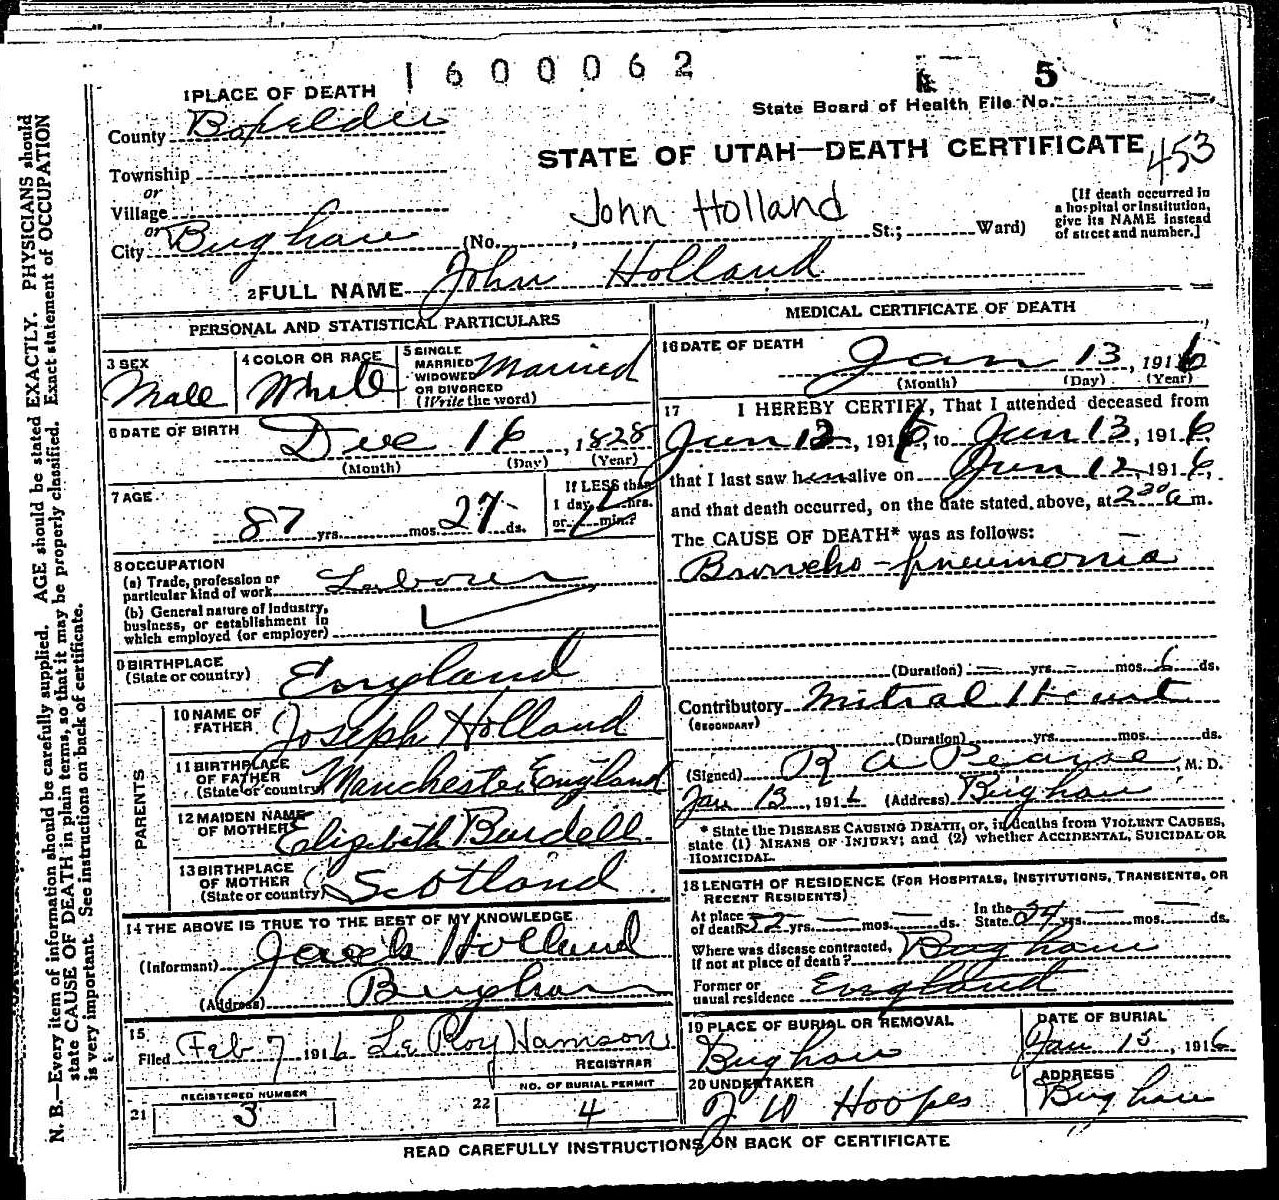 1600062
5
State Board of Health File No.
1 PLACE OF DEATH
County Boxelder
STATE OF UTAH—DEATH CERTIFICATE
453
Township
or
Village
or
City Brigham (No. , St.; Ward)
John Holland
[If death occurred in a hospital or institution, give its NAME instead of street and number.]
2 FULL NAME John Holland
PERSONAL AND STATISTICAL PARTICULARS
3 SEX Male
4 COLOR OR RACE White
5 SINGLE MARRIED WIDOWED OR DIVORCED (Write the word) Married
6 DATE OF BIRTH Dec 16, 1828
(Month) (Day) (Year)
7 AGE 87 yrs. mos. 27 ds.
If LESS than 1 day, hrs. or min.?
8 OCCUPATION
(a) Trade, profession or particular kind of work Labourer
(b) General nature of industry, business, or establishment in which employed (or employer)
9 BIRTHPLACE (State or country) England
PARENTS
10 NAME OF FATHER Joseph Holland
11 BIRTHPLACE OF FATHER (State or country) Manchester England
12 MAIDEN NAME OF MOTHER Elizabeth Burdell
13 BIRTHPLACE OF MOTHER (State or country) Scotland
14 THE ABOVE IS TRUE TO THE BEST OF MY KNOWLEDGE
(Informant) Holland
(Address) Brigham
15
Filed Feb 7 1916 Le Roy Harrison
REGISTRAR
REGISTERED NUMBER
21 3
NO. OF BURIAL PERMIT
22 4
MEDICAL CERTIFICATE OF DEATH
16 DATE OF DEATH Jan 13, 1916
(Month) (Day) (Year)
17 I HEREBY CERTIFY, That I attended deceased from
Jan 12, 1916, to Jan 13, 1916,
that I last saw him alive on Jan 12, 1916,
and that death occurred, on the date stated above, at 2 30 a m.
The CAUSE OF DEATH* was as follows:
Broncho-pneumonia
(Duration) — yrs. — mos. 6 ds.
Contributory Mitral Heart
(SECONDARY)
(Duration) yrs. mos. ds.
(Signed) R A Pearse, M. D.
Jan 13, 1916 (Address) Brigham
* State the DISEASE CAUSING DEATH, or, in deaths from VIOLENT CAUSES, state (1) MEANS OF INJURY; and (2) whether ACCIDENTAL, SUICIDAL OR HOMICIDAL.
18 LENGTH OF RESIDENCE (FOR HOSPITALS, INSTITUTIONS, TRANSIENTS, OR RECENT RESIDENTS)
At place of death 52 yrs. — mos. — ds. In the State 54 yrs. — mos. — ds.
Where was disease contracted, if not at place of death? Brigham
Former or usual residence England
19 PLACE OF BURIAL OR REMOVAL Brigham
DATE OF BURIAL Jan 15, 1916
20 UNDERTAKER W Hoopes
ADDRESS Brigham
READ CAREFULLY INSTRUCTIONS ON BACK OF CERTIFICATE
N. B.—Every item of information should be carefully supplied. AGE should be stated EXACTLY. PHYSICIANS should
state CAUSE OF DEATH in plain terms, so that it may be properly classified. Exact statement of OCCUPATION
is very important. See instructions on back of certificate.